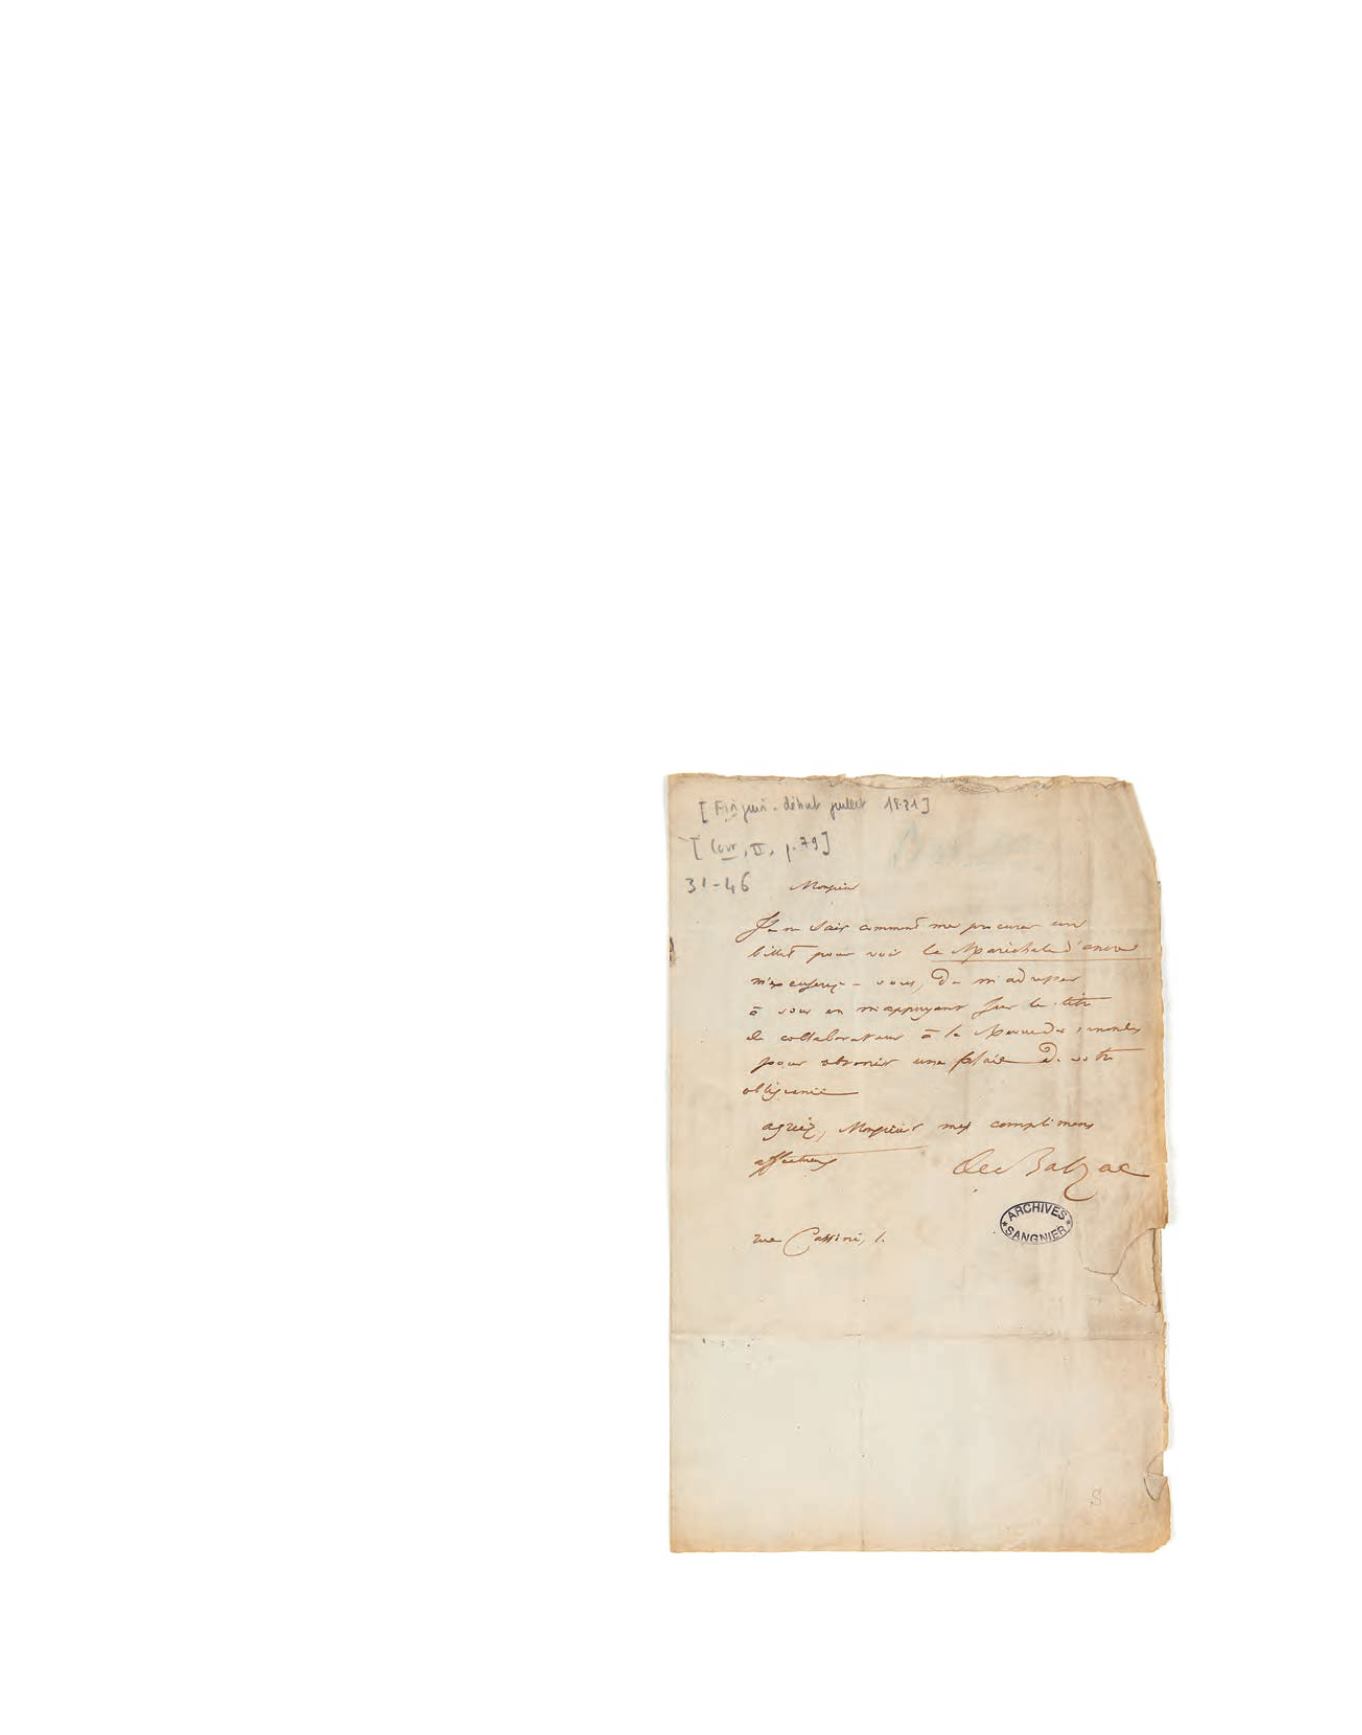 [Fin juin - début juillet 1831]
[Cor, II, p. 79]
31-46
Monsieur
Je ne sais comment me procurer un
billet pour voir la Maréchale d'ancre
m'excuserez-vous, de m'adresser
à vous en m'appuyant sur le titre
de collaborateur à la Revue des mondes
pour obtenir une place de votre
obligeance
agréez, Monsieur mes complimens
affectueux
de Balzac
ARCHIVES
SANGNIER
rue Cassini, 1.
S